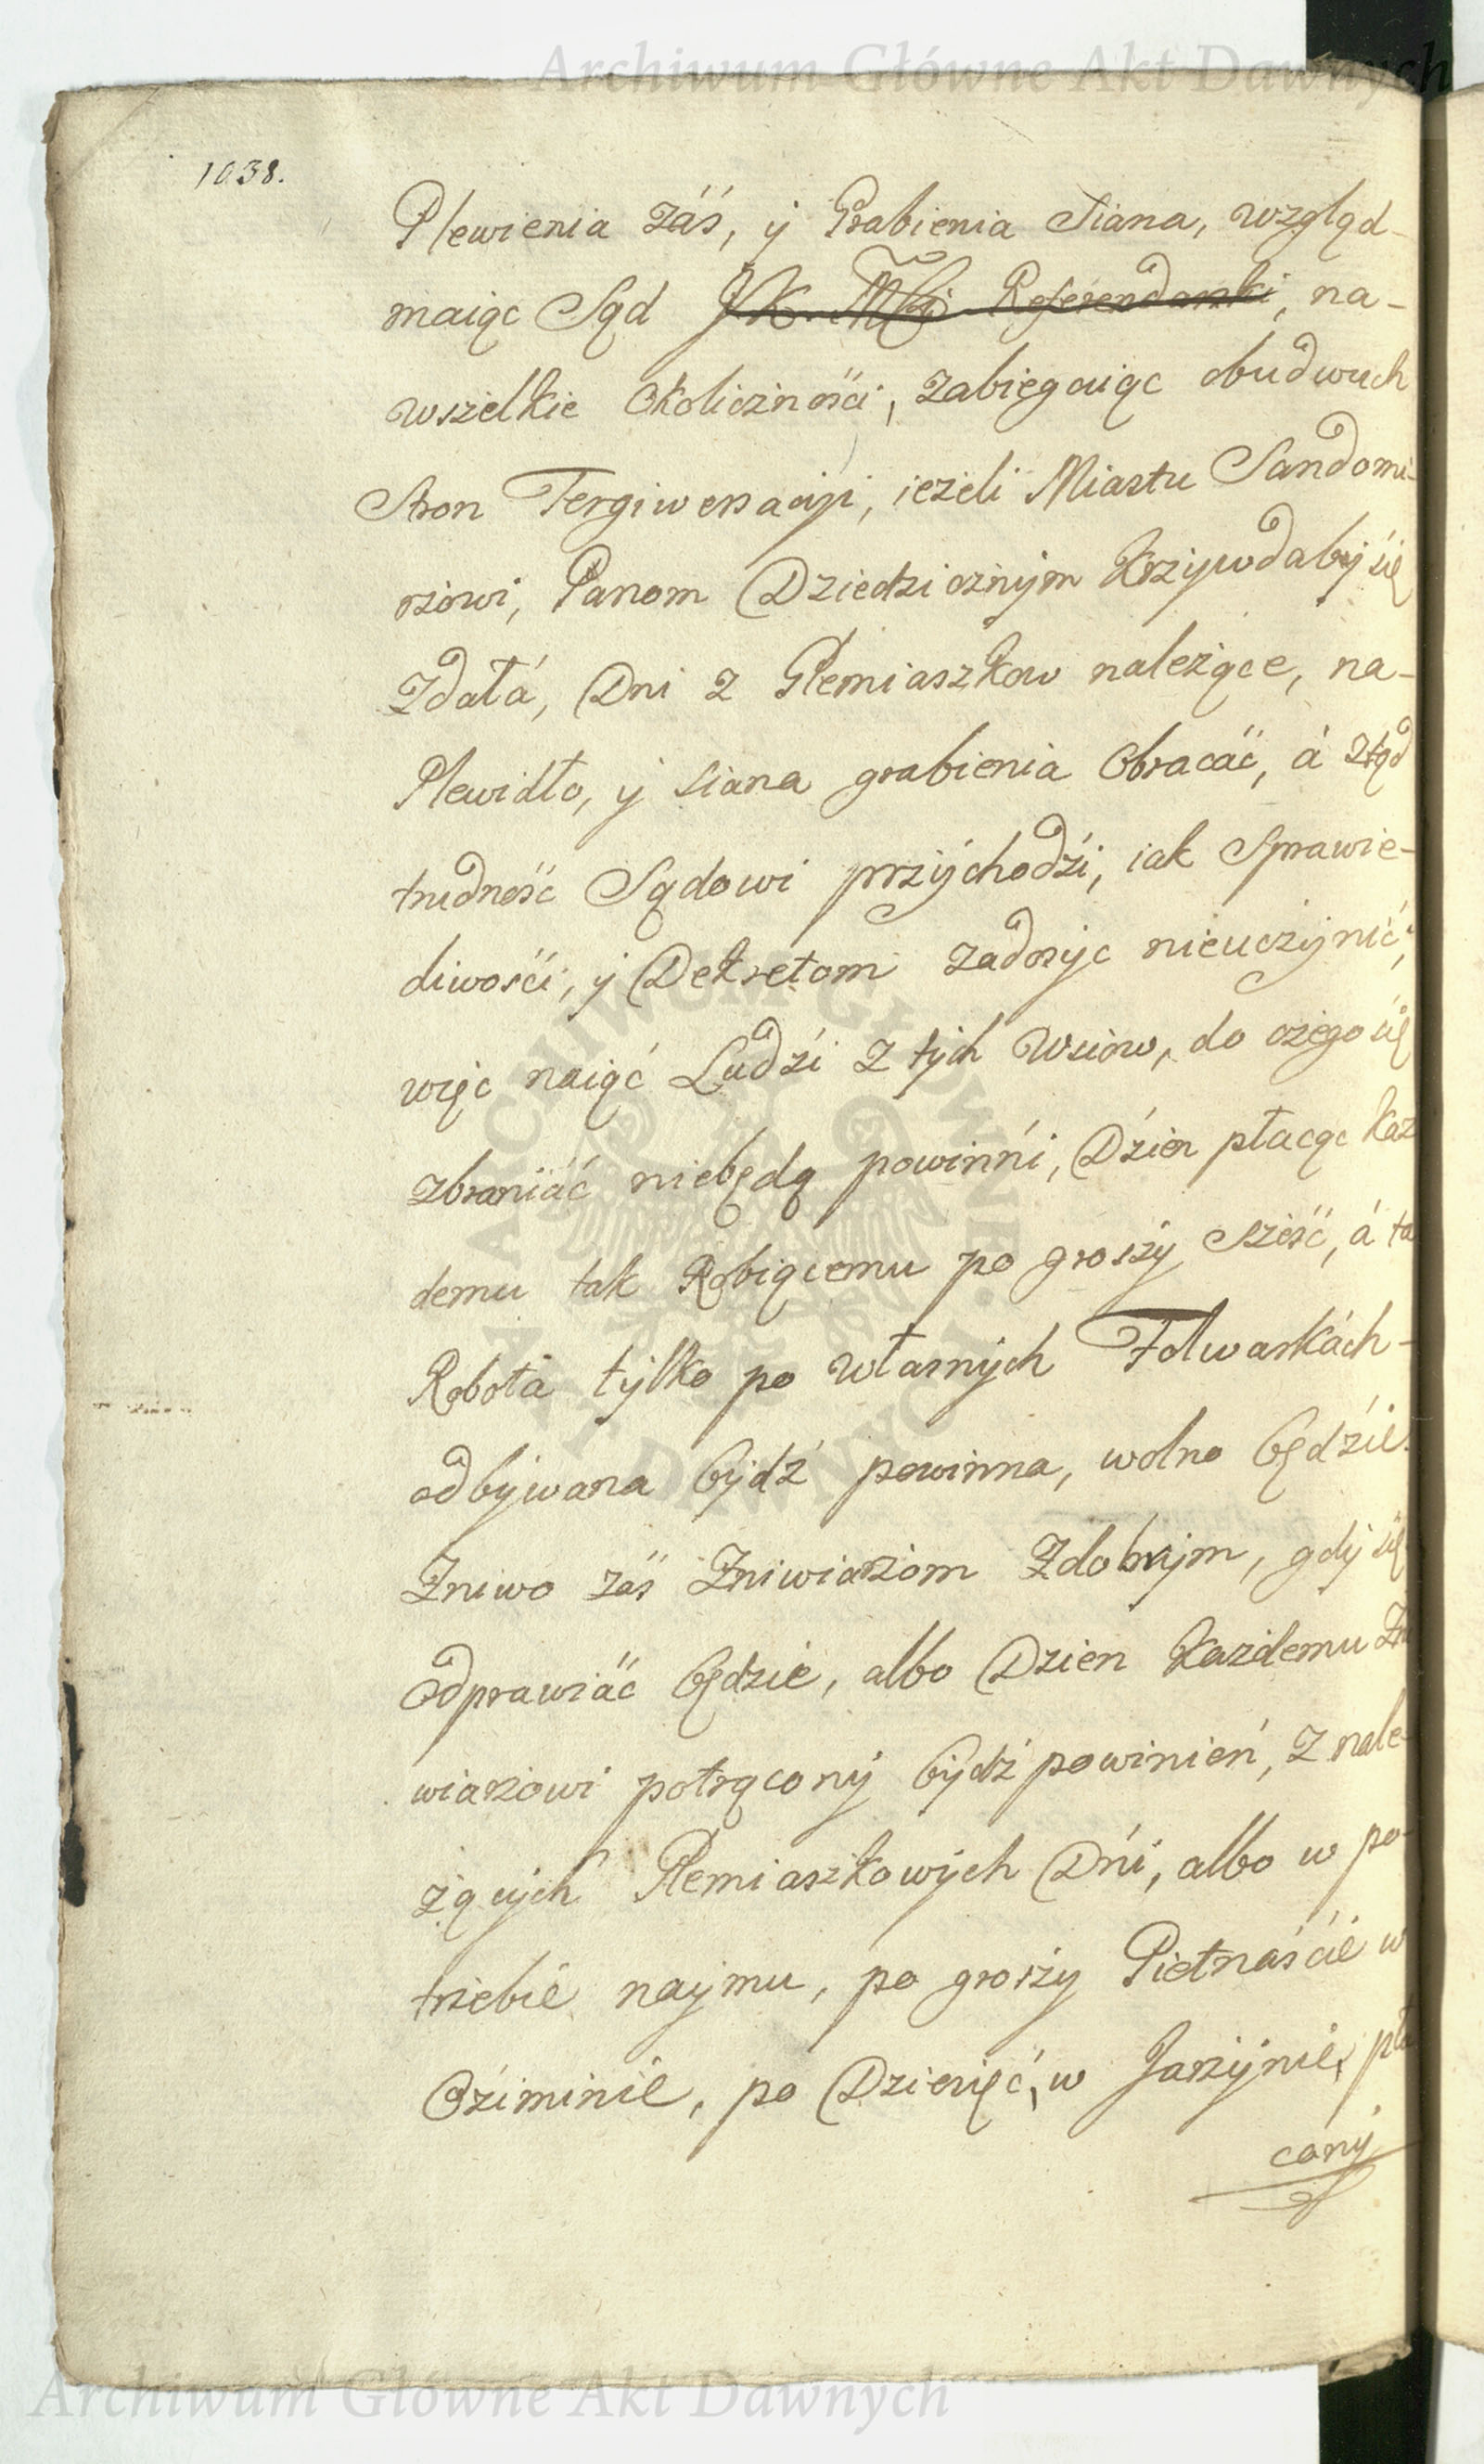 Archiwum Główne Akt Dawnych
1038.
Plewienia záś, ÿ Grabienia Siana, wzgląd-
maiąc Sąd JK Mći Referendarski, na-
wszelkie Okolicżnosći, zabiegaiąc obudwuch
Stron Tergiwersacÿi, ieżeli Miastu Sandomi-
rżowi, Panom Dziedzicżnÿm Krzÿwdabÿ się
Zdałá, Dni z Plemiaszkow należące, na-
Plewidło, ÿ siana grabienia Obracáć, á ztąd
trudność Sądowi przÿchodźi, iak Sprawie-
dliwosći, ÿ Dekretom zadosÿc nieucżÿnić,
więc naiąć Ludźi z tÿch Wsiow, do cżego się
zbraniáć niebędą powinńi, Dźien płacąc Każ
demu tak Robiącemu po groszÿ sześć, á ta
Robota tÿlko po Własnÿch Folwarkách-
odbÿwana bÿdź powinna, wolno będźie.
Zniwo záś Zniwiarżom Zdobrÿm, gdÿ się
Odprawiáć będzie, albo Dzien Każdemu Zni
wiarżowi potrąconÿ bÿdź powinień, z nale-
żącÿch Plemiaszkowÿch Dńi, albo w po-
trżebie naÿmu, po groszÿ Pietnaśćie w
Oźiminie, po Dziewięć, w Jarżÿnie, pła
canÿ
ARCHIWUM GŁÓWNE AKT DAWNYCH
Archiwum Główne Akt Dawnych